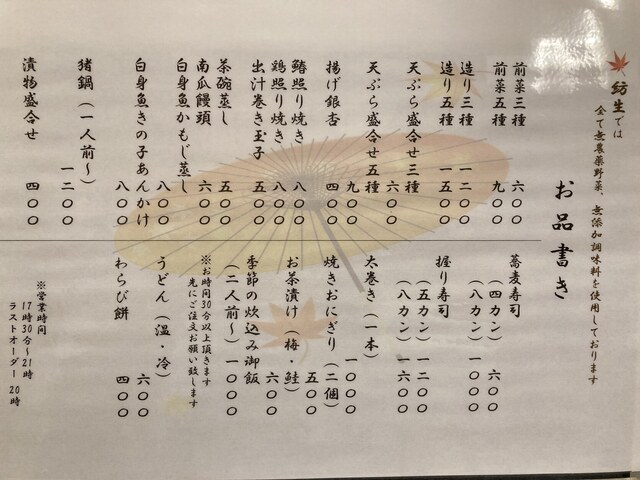 紡生では
全て無農薬野菜、無添加調味料を使用しております
お品書き
前菜三種 六〇〇
前菜五種 九〇〇
造り三種 一二〇〇
造り五種 一五〇〇
天ぷら盛合せ三種 六〇〇
天ぷら盛合せ五種 九〇〇
揚げ銀杏 四〇〇
鰆照り焼き 八〇〇
鶏照り焼き 八〇〇
出汁巻き玉子 五〇〇
茶碗蒸し 五〇〇
南瓜饅頭 六〇〇
白身魚かもじ蒸し 八〇〇
白身魚きの子あんかけ 八〇〇
猪鍋（一人前～） 一二〇〇
漬物盛合せ 四〇〇
蕎麦寿司
（四カン） 六〇〇
（八カン） 一〇〇〇
握り寿司
（五カン） 一二〇〇
（八カン） 一六〇〇
太巻き（一本） 一〇〇〇
焼きおにぎり（二個） 五〇〇
お茶漬け（梅・鮭） 六〇〇
季節の炊込み御飯
（二人前～） 一〇〇〇
※お時間30分以上頂きます
先にご注文お願い致します
うどん（温・冷） 六〇〇
わらび餅 四〇〇
※営業時間
17時30分～21時
ラストオーダー 20時